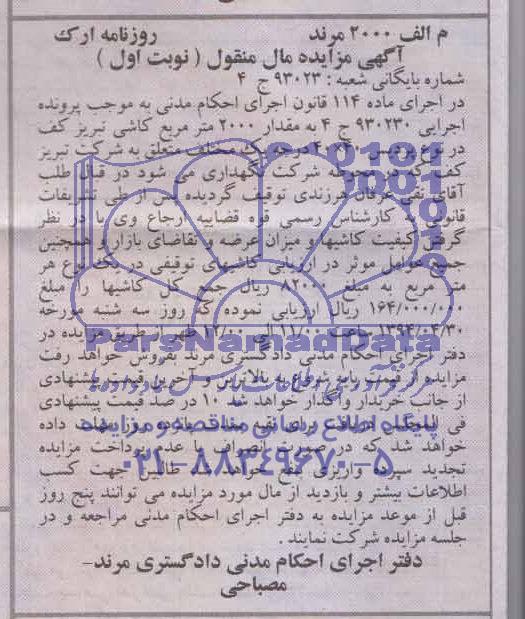 م الف ۲۰۰۰ مرند روزنامه ارک
آگهی مزایده مال منقول ( نوبت اول )
شماره بایگانی شعبه : ۹۳۰۲۳ ج ۴
در اجرای ماده ۱۱۴ قانون اجرای احکام مدنی به موجب پرونده
اجرایی ۹۳۰۲۳۰ ج ۴ به مقدار ۲۰۰۰ متر مربع کاشی تبریز کف
در نوع پردیس ۴۰×۴۰ درجه یک مختلف متعلق به شرکت تبریز
کف که در محوطه شرکت نگهداری می شود در قبال طلب
آقای تقی عرفان فرزندی توقیف گردیده پس از طی تشریفات
قانونی به کارشناس رسمی قوه قضاییه ارجاع وی با در نظر
گرفتن کیفیت کاشیها و میزان عرضه و تقاضای بازار و همچنین
جمیع عوامل موثر در ارزیابی کاشیهای توقیفی در یک نوع هر
متر مربع به مبلغ ریال جمع کل کاشیها را مبلغ
۱۶۴/۰۰۰/۰۰۰ ریال ارزیابی نموده که روز سه شنبه مورخه
۱۳۹۴/۰۴/۳۰ ساعت ۱۱/۰۰ الی ۱۲/۰۰ ظهر از طریق مزایده در
دفتر اجرای احکام مدنی دادگستری مرند بفروش خواهد رفت
مزایده از قیمت پایه شروع به بالاترین و آخرین قیمت پیشنهادی
از جانب خریدار واگذار خواهد شد ۱۰ در صد قیمت پیشنهادی
فی المجلس دریافت برای بقیه روز مهلت داده
خواهد شد که در صورت انصراف یا عدم پرداخت مزایده
تجدید سپرده واریزی ضبط خواهد شد طالبین جهت کسب
اطلاعات بیشتر و بازدید از مال مورد مزایده می توانند پنج روز
قبل از موعد مزایده به دفتر اجرای احکام مدنی مراجعه و در
جلسه مزایده شرکت نمایند .
دفتر اجرای احکام مدنی دادگستری مرند-
مصباحی
ParsNamadData
پایگاه اطلاع رسانی مناقصه و مزایده
۰۲۱-۸۸۳۴۹۶۷۰-۵